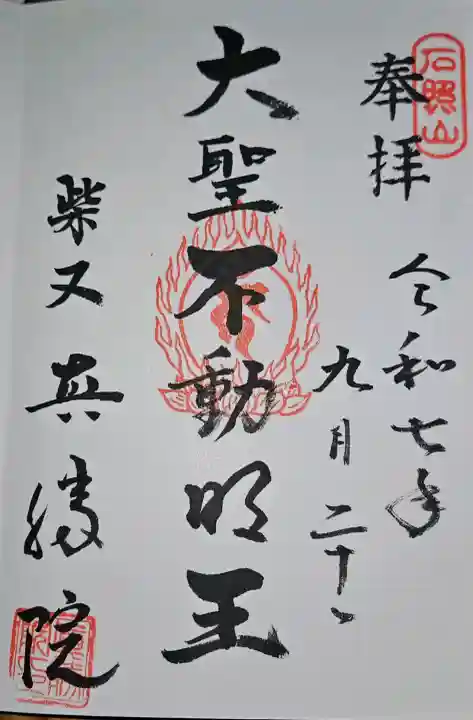 石照山
奉拝
令和七年
九月二十
大聖不動明王
柴又 真勝院